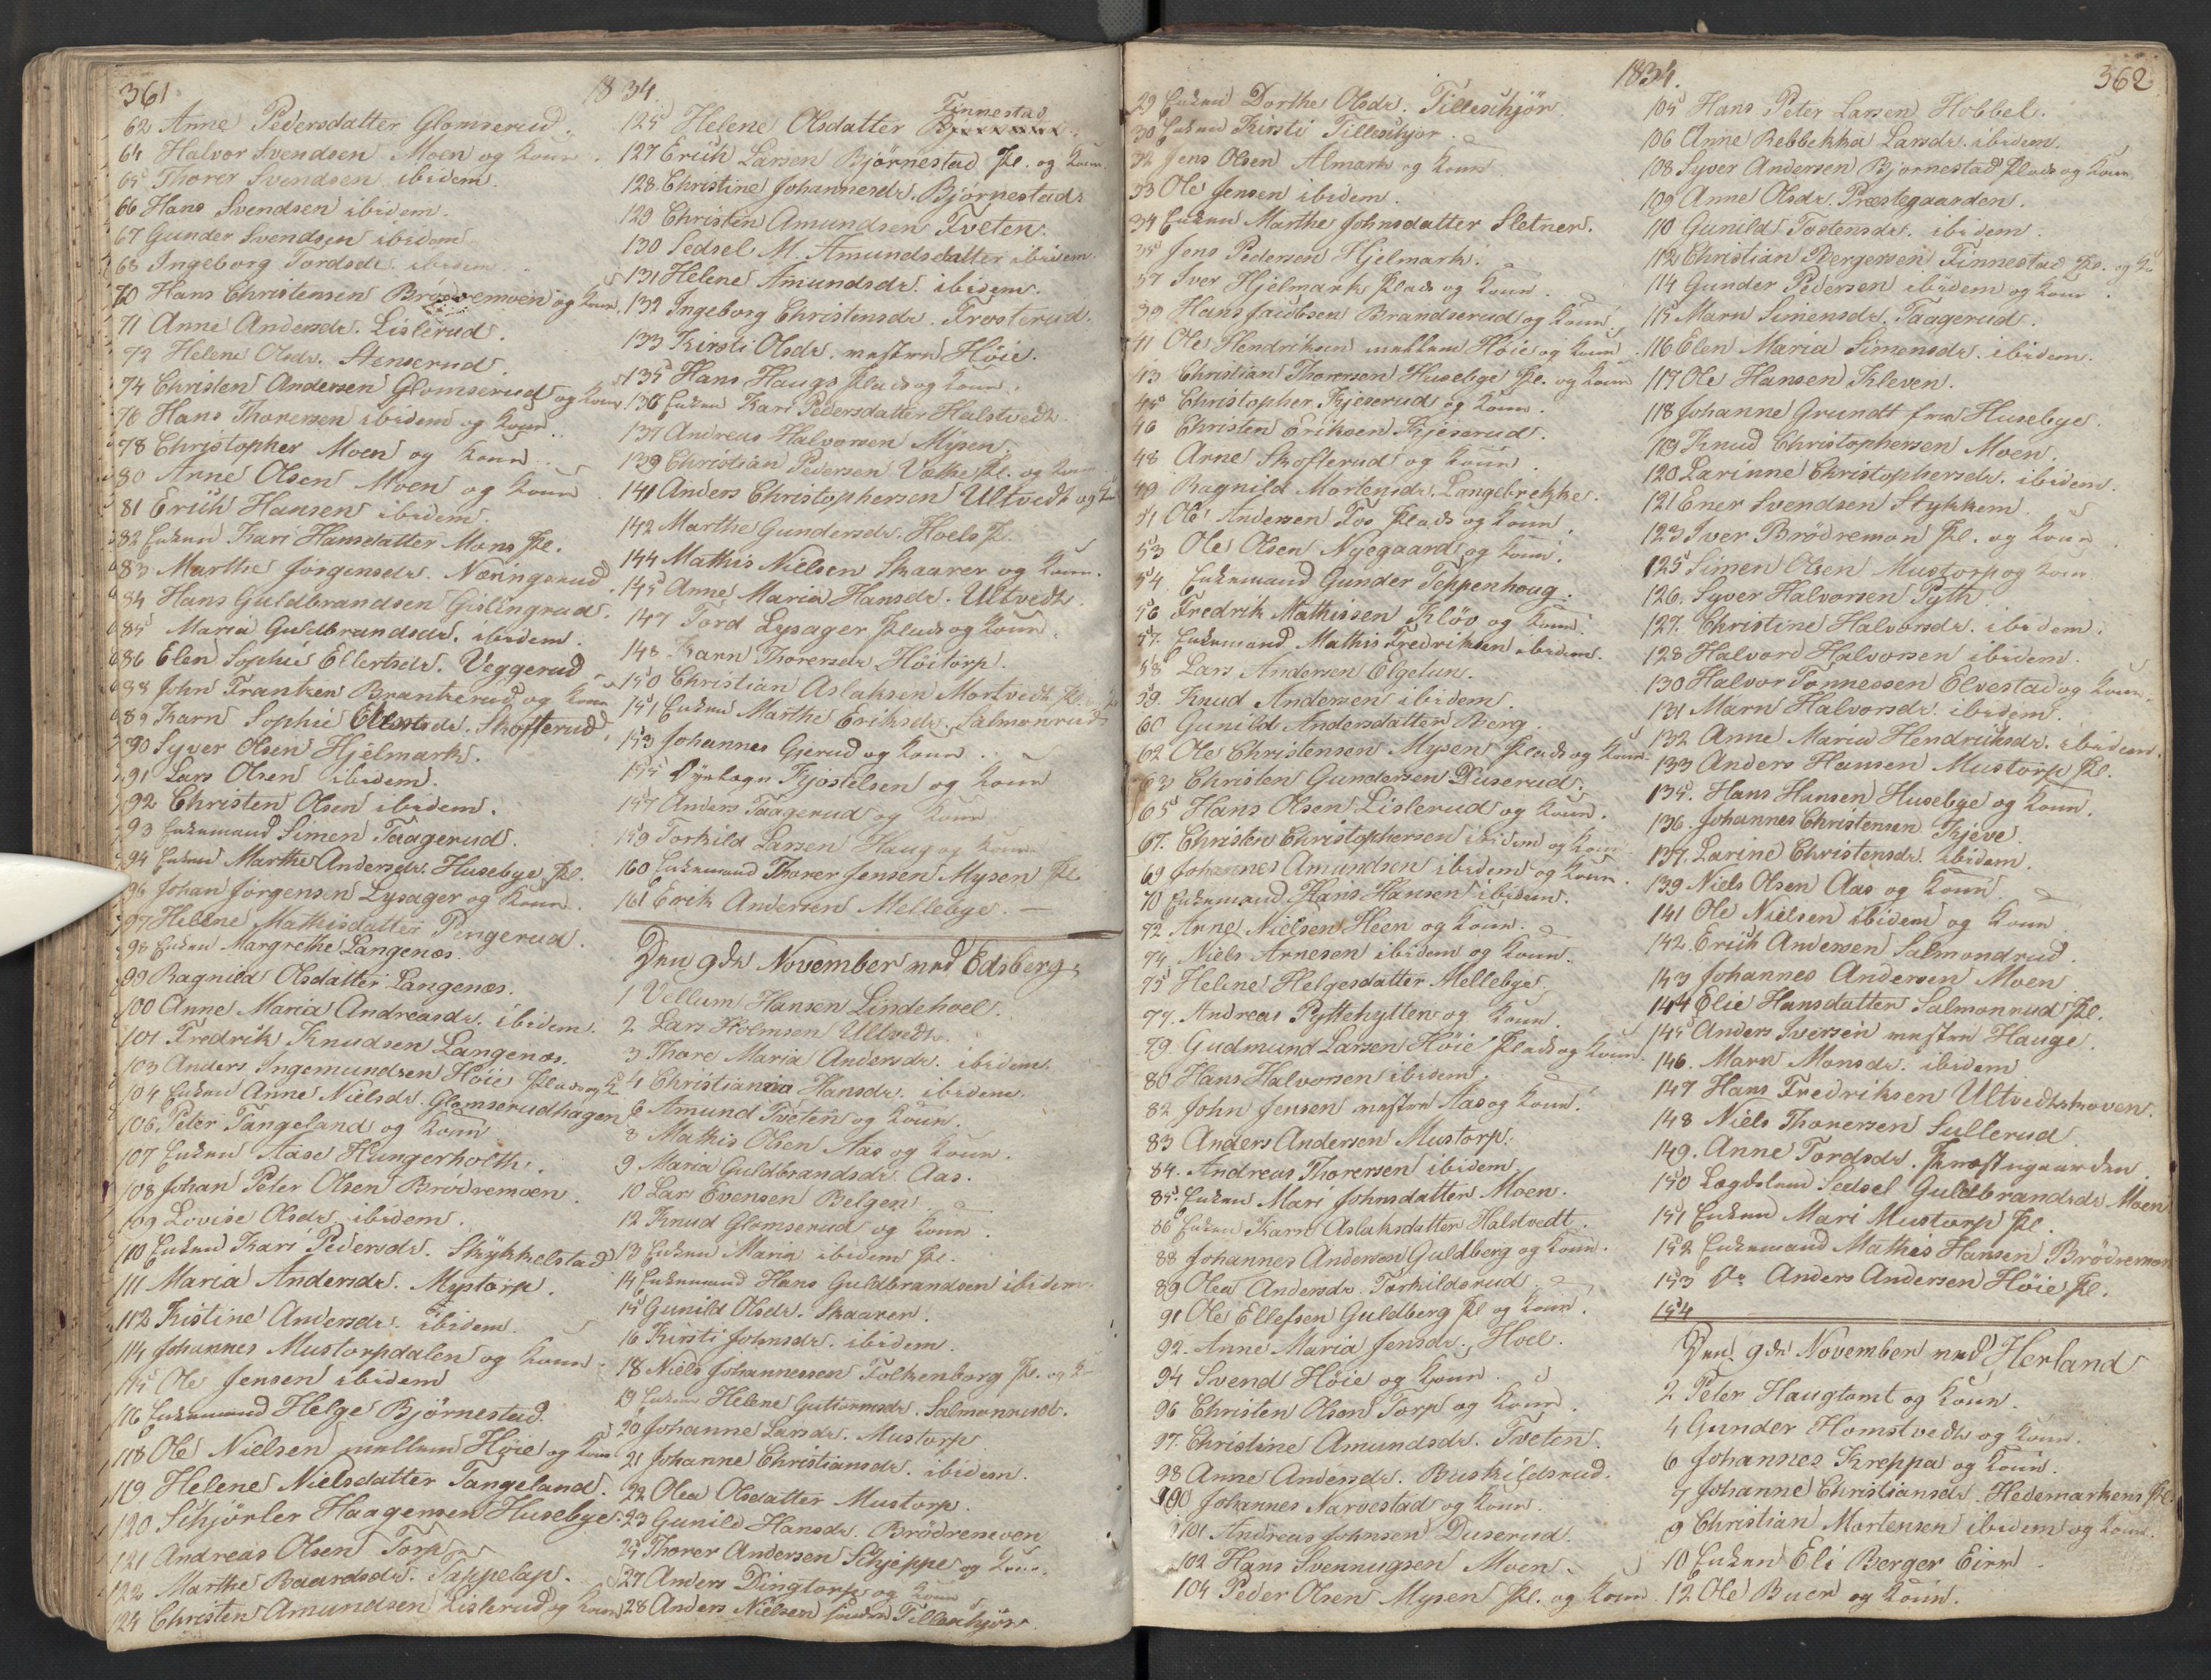 361
1834
62 Anne Pedersdatter Glomserud.
64 Halvor Svendsen Moen og Kone.
65 Thorer Svendsen ibidem.
66 Hans Svendsen ibidem.
67 Gunder Svendsen ibidem
68 Ingeborg Tordsdr. ibidem
70 Hans Christensen Brødremoen og Kone.
71 Anne Andersdr. Lislerud.
72 Helene Olsdr. Stenserud
74 Christen Andersen Glomserud og Kone
76 Hans Thorersen ibidem og Kone
78 Christopher Moen og Kone
80 Arne Olsen Moen og Kone
81 Erich Hansen ibidem.
82 Enken Kari Hansdatter Mons Pl.
83 Marthe Jørgensdr. Næringsrud
84 Hans Guldbrandsen Gislingrud.
85 Maria Guldbrandsdr. ibidem.
86 Elen Sophie Ellertsdr. Veggerud
88 John Frantzen Brantzerud og Kone
89 Karn Sophie Ellertsdr. Skofterud.
90 Syver Olsen Hjelmark.
91 Lars Olsen ibidem.
92 Christen Olsen ibidem.
93 Enkemand Simen Taagerud.
94 Enken Marthe Andersdr. Husebye Pl.
96 Johan Jørgensen Lysager og Kone.
97 Helene Mathisdatter Pengerud.
98 Enken Margrethe Langenæs.
99 Ragnild Olsdatter Langenæs.
100 Anne Maria Andreasdr. ibidem.
101 Fredrik Knudsen Langenæs.
103 Anders Ingemundsen Höie Plads og K
104 Enken Anne Nielsdr. Glomserudhagen
106. Peter Tangeland og Kone
107 Enken Aase Hungerholth.
108 Johan Peter Olsen Brødremoen.
109 Lovise Olsdr. ibidem.
110 Enken Kari Pedersdr. Skykkelstad
111 Maria Andersdr. Mystorp.
112 Kistine Andersdr. ibidem.
114 Johannes Mustorpdalen og Kone
115 Ole Jensen ibidem
116 Enkemand Helge Björnestad.
118 Ole Nielsen mellem Höie og Kone
119 Helene Nielsdatter Tangeland.
120 Schjörler Haagensen Husebye.
121 Andreas Olsen Torp
122 Marthe Baardsdr. Tappelap.
124 Christen Amundsen Lislerud og Kone
Finnestad
125 Helene Olsdatter
127 Erich Larsen Björnestad Pl. og Kone
128 Christine Johannesdr. Björnestad
129 Christen Amundsen Tveten.
130 Sedsel M. Amundsdatter ibidem.
131 Helene Amundsdr. ibidem.
132 Ingeborg Christensdr. Frosterud.
133 Kirsti Olsdr. westre Höie.
135 Hans Haugs Plads og Kone.
136 Enken Kari Pedersdatter Halstvedt
137 Andreas Halvorsen Mysen
139 Christian Pedersen Vathe Pl. og Kone
141 Anders Christophersen Ultvedt og K
142 Marthe Gundersdr. Hoels P.
144 Mathis Nielsen Skaarer og Kone.
145 Anne Maria Hansdr. Ultvedt.
147 Tord Lysager Plads og Kone.
148 Karn Thorersdr. Höitorp.
150 Christian Aslaksen Mortvedt Pl.
151 Enken Marthe Eriksdr. Salmonrud
153 Johannes Gjerud og Kone.
155 Fjostelsen og Kone
157 Anders Taagerud og Kone
159 Torkild Larsen Haug og Kone
160 Enkemand Thorer Jensen Mysen Pl.
161 Erik Andersen Mellebye. —
Den 9de November ved Edsberg.
1 Vellum Hansen Lindehoel.
2 Lars Holmsen Ultvedt.
3 Thore Maria Andersdr. ibidem.
4 Christiania Hansdr. ibidem.
6 Amund Tveten og Kone.
8 Mathis Olsen Aas og Kone.
9 Maria Guldbrandsdr. Aas.
10 Lars Evensen Belgen.
12 Knud Glomserud og Kone.
13 Enken Maria ibidem Pl.
14 Enkemand Hans Guldbrandsen ibidem.
15 Gunild Olsdr. Skaarer.
16 Kirsti Johnsdr. ibidem.
18 Niels Johannessen Folkenborg Pl. og K
19 Enken Helene Guttormsdr. Salmonrud.
20 Johanne Larsdr. Mustorp
21 Johanne Christiansdr. ibidem.
22 Olea Olsdatter Mustorp.
23 Gunild Hansdr. Brödremoen
25 Thorer Andersen Schjeppe og Kone.
27 Anders Dingtorp og Kone
28 Anders Nielsen Tilleschjör.
1834.
362
29 Enken Dorthe Olsdr. Tilleschjör
30 Enken Kirsti Tilleschjor.
32 Jens Olsen Almark og Kone
33 Ole Jensen ibidem.
34 Enken Marthe Johnsdatter Sletner.
35 Jens Pedersen Hjelmark.
37 Iver Hjelmark Plads og Kone.
39 Hans Jacobsen Brandserud og Kone
41 Ole Hendriksen mellem Höie og Kone
43 Christian Thorersen Husebye Pl. og Kone
45 Christopher Kjeserud og Kone.
46 Christen Eriksen Kjeserud.
48 Arne Skofterud og Kone
49 Ragnild Mortensdr. Langebrekke.
51 Ole Andersen Foo Plads og Kone
53 Ole Olsen Nyegaard og Kone.
54 Enkemand Gunder Teppenhoug.
56 Fredrik Mathissen Klöv og Kone
57. Enkemand Mathis Fredriksen ibidem.
58 Lars Andersen Elgetun.
59. Knud Andersen ibidem.
60 Gunild Andersdatter Berg.
62 Ole Christensen Mysen Plads og Kone
63 Christen Gundersen Duserud.
65 Hans Olsen Lislerud og Kone.
67. Christen Christophersen ibidem og Kone
69 Johannes Amundsen ibidem og Kone.
70 Enkemand Hans Hansen ibidem.
72 Arne Nielsen Heen og Kone.
74 Niels Arnesen ibidem og Kone.
75 Helene Helgesdatter Mellebye.
77. Andreas Pyttehytten og Kone
79. Gudmund Larsen Höie Plads og Kone
80 Hans Halvorsen ibidem.
82 John Jensen westre Aas og Kone.
83 Anders Andersen Mustorp.
84. Andreas Thorersen ibidem
85. Enken Mari Johnsdatter Moen.
86 Enken Karn Aslaksdatter Halstvedt.
88 Johannes Andersen Guldberg og Kone.
89 Olea Andersdr. Torkildsrud.
91 Ole Ellefsen Guldberg Pl og Kone.
92. Anne Maria Jensdr. Hoel.
94 Svend Höie og Kone.
96 Christen Olsen Torp og Kone.
97. Christine Amundsdr. Tveten.
98 Anne Andersdr. Buskildsrud.
100 Johannes Narvestad og Kone.
101 Andreas Johnsen Duserud.
102 Hans Svennugsen Moen.
104 Peder Olsen Mysen Pl. og Kone
105 Hans Peter Larsen Hobbel.
106 Anne Rebbekka Larsdr. ibidem.
108 Syver Andersen Bjornestad Plads og Kone
109 Anne Olsdr. Præstegaarden.
110 Gunild Tostensdr. ibidem.
112 Christian Bergersen Finnestad Pl. og K
114 Gunder Pedersen ibidem og Kone.
115 Marn Simensdr. Taagerud.
116 Elen Maria Simensdr. ibidem.
117 Ole Hansen Kleven.
118 Johanne Grundt fra Husebye.
119 Knud Christophersen Moen.
120 Larinne Christophersdr. ibidem.
121 Ener Svendsen Stykkem
123 Iver Brödremon Pl. og Kone
125 Simen Olsen Mustorp og Kone
126. Syver Halvorsen Pyth
127. Christine Halvorsdr. ibidem.
128 Halvord Halvorsen ibidem.
130 Halvor Tonnessen Elvestad og Kone.
131 Marn Halvorsdr. ibidem.
132 Anne Maria Hendriksdr. ibidem.
133 Anders Hansen Mustorp Pl.
135. Hans Hansen Husebye og Kone.
136. Johannes Christensen Kjeve.
137. Larine Christensdr. ibidem.
139 Niels Olsen Aas og Kone
141 Ole Nielsen ibidem og Kone
142 Erich Andersen Salmondrud.
143 Johannes Andersen Moen
144 Elie Hansdatter Salmonrud Pl.
145 Anders Iversen westre Hauge.
146. Marn Monsdr. ibidem
147 Hans Fredriksen Ultvedtskoven.
148 Niels Thorersen Sullerud.
149. Anne Tordsdr. Præstegaarden
150 Lægdslem Sedsel Guldbrandsdr. Moen
151 Enken Mari Mustorp Pl.
152 Enkemand Mathis Hansen Brödremon
153 Do Anders Andersen Höie Pl.
154
Den 9de November ved Herland
2 Peter Haugtomt og Kone.
4 Gunder Homstvedt og Kone.
6 Johannes Kreppa og Kone.
7 Johanne Christiansdr. Hedemarkens Pl.
9 Christian Mortensen ibidem og Kone.
10 Enken Eli Berger Eier
12 Ole Buer og Kone.